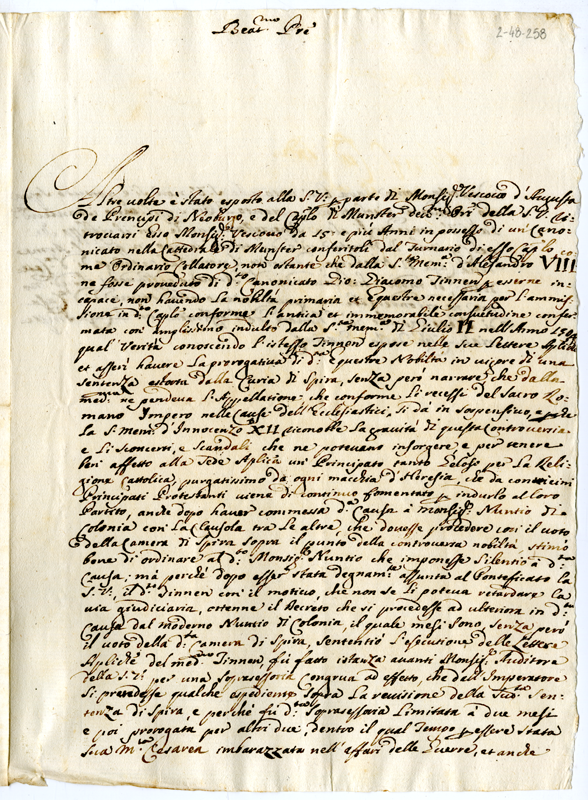 2-48-258
Beat.mo Pre
Altre volte è stato esposto alla S. V.a p parte di Monsig.r Vescovo d'Augusta
de Principi di Neoburgo, e del Caplo di Munster della S. V.
Esso Monsig.r Vescovo da 15 e più Anni in possesso di un Cano-
nicato nella Cattedrale di Munster conferitoli dal Turnario di esso Caplo co-
me Ordinario Collatore, non ostante che dalla S. mem. d'Alesandro VIII
ne fosse proveduto di d.o Canonicato Gio: Giacomo Tinnen p esserne in-
capace, non havendo la nobiltà primaria et equestre necessaria per l'ammis-
sione in d.o Caplo conforme l'antica et immemorabile consuetudine confer-
mata con amplissimo indulto dalla S.ta mem.a di Giulio II nell'Anno
qual verità conoscendo l'istesso Tinnen espose nelle sue Lettere Aplice
et asserì havere la prerogativa di d.a equestre Nobiltà in vigore di una
sentenza estorta dalla Curia di Spira, senza però narrare che dalla
med.ma ne pendeva l'Appellatione, che conforme li recessi del Sacro Ro-
mano Impero nelle Cause dell'Ecclesiastici, si dà in sospensivo,
La S. Mem. d'Innocenzo XII riconobbe la gravità di questa Controversia
e li sconcerti, e scandali che ne potevano insorgere e per tenere
ben affetto alla Sede Aplica un Principato tanto geloso per la Reli-
gione Cattolica, purgatissimo da ogni macchia d'Heresia, che da convicini
Principati Protestanti viene di continuo fomentato p indurlo al loro
Partito, anche dopo haver commessa d.a Causa à Monsig.r Nuntio di
Colonia con la Clausola tra le altre, che dovesse procedere con il voto
della Camera di Spira sopra il punto della controversa nobiltà, stimò
bene di ordinare al d.o Monsig.r Nuntio che imponesse silentio à d.a
Causa; mà perche dopo esser stata degnam.te assunta al Ponteficato la
S. V., il d.o Tinnen con il motivo, che non se li poteva retardare la
via giudiciaria, ottenne il Decreto che si procedesse ad ulteriora in d.a
Causa dal moderno Nuntio di Colonia, il quale mesi sono, senza però
il voto della d.a Camera di Spira, sententiò l'esecuzione delle Lettere
Apliche del med.mo Tinnen, fù fatto istanza avanti Monsig.r Auditore
della S. V. per una soprasessoria congrua ad effetto, che dell'Imperatore
si prendesse qualche espediente sopra la revisione della sud.ta Sen-
tenza di Spira, e perche fù d.a soprasessoria limitata à due mesi
e poi prorogata per altri due, dentro il qual tempo p essere stata
Sua M.tà Cesarea imbarazzata nell'affari delle Guerre, et anche